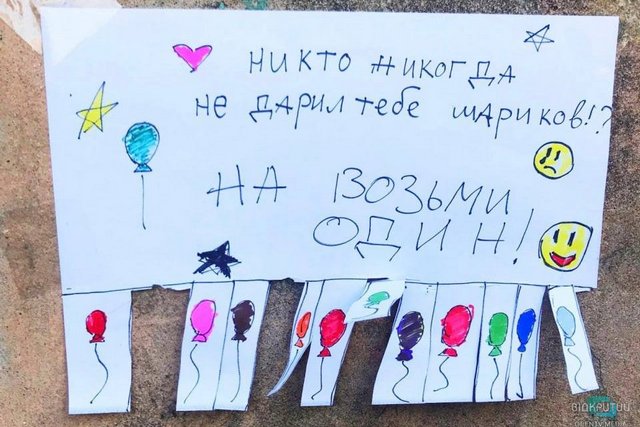 никто никогда
не дарил тебе шариков!?
на возьми
один!
ВІДКРИТИЙ